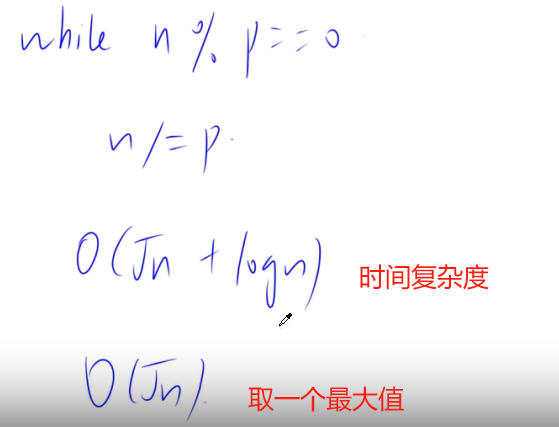 while n % p == 0
n /= p
O(√n + logn) 时间复杂度
O(√n). 取一个最大值